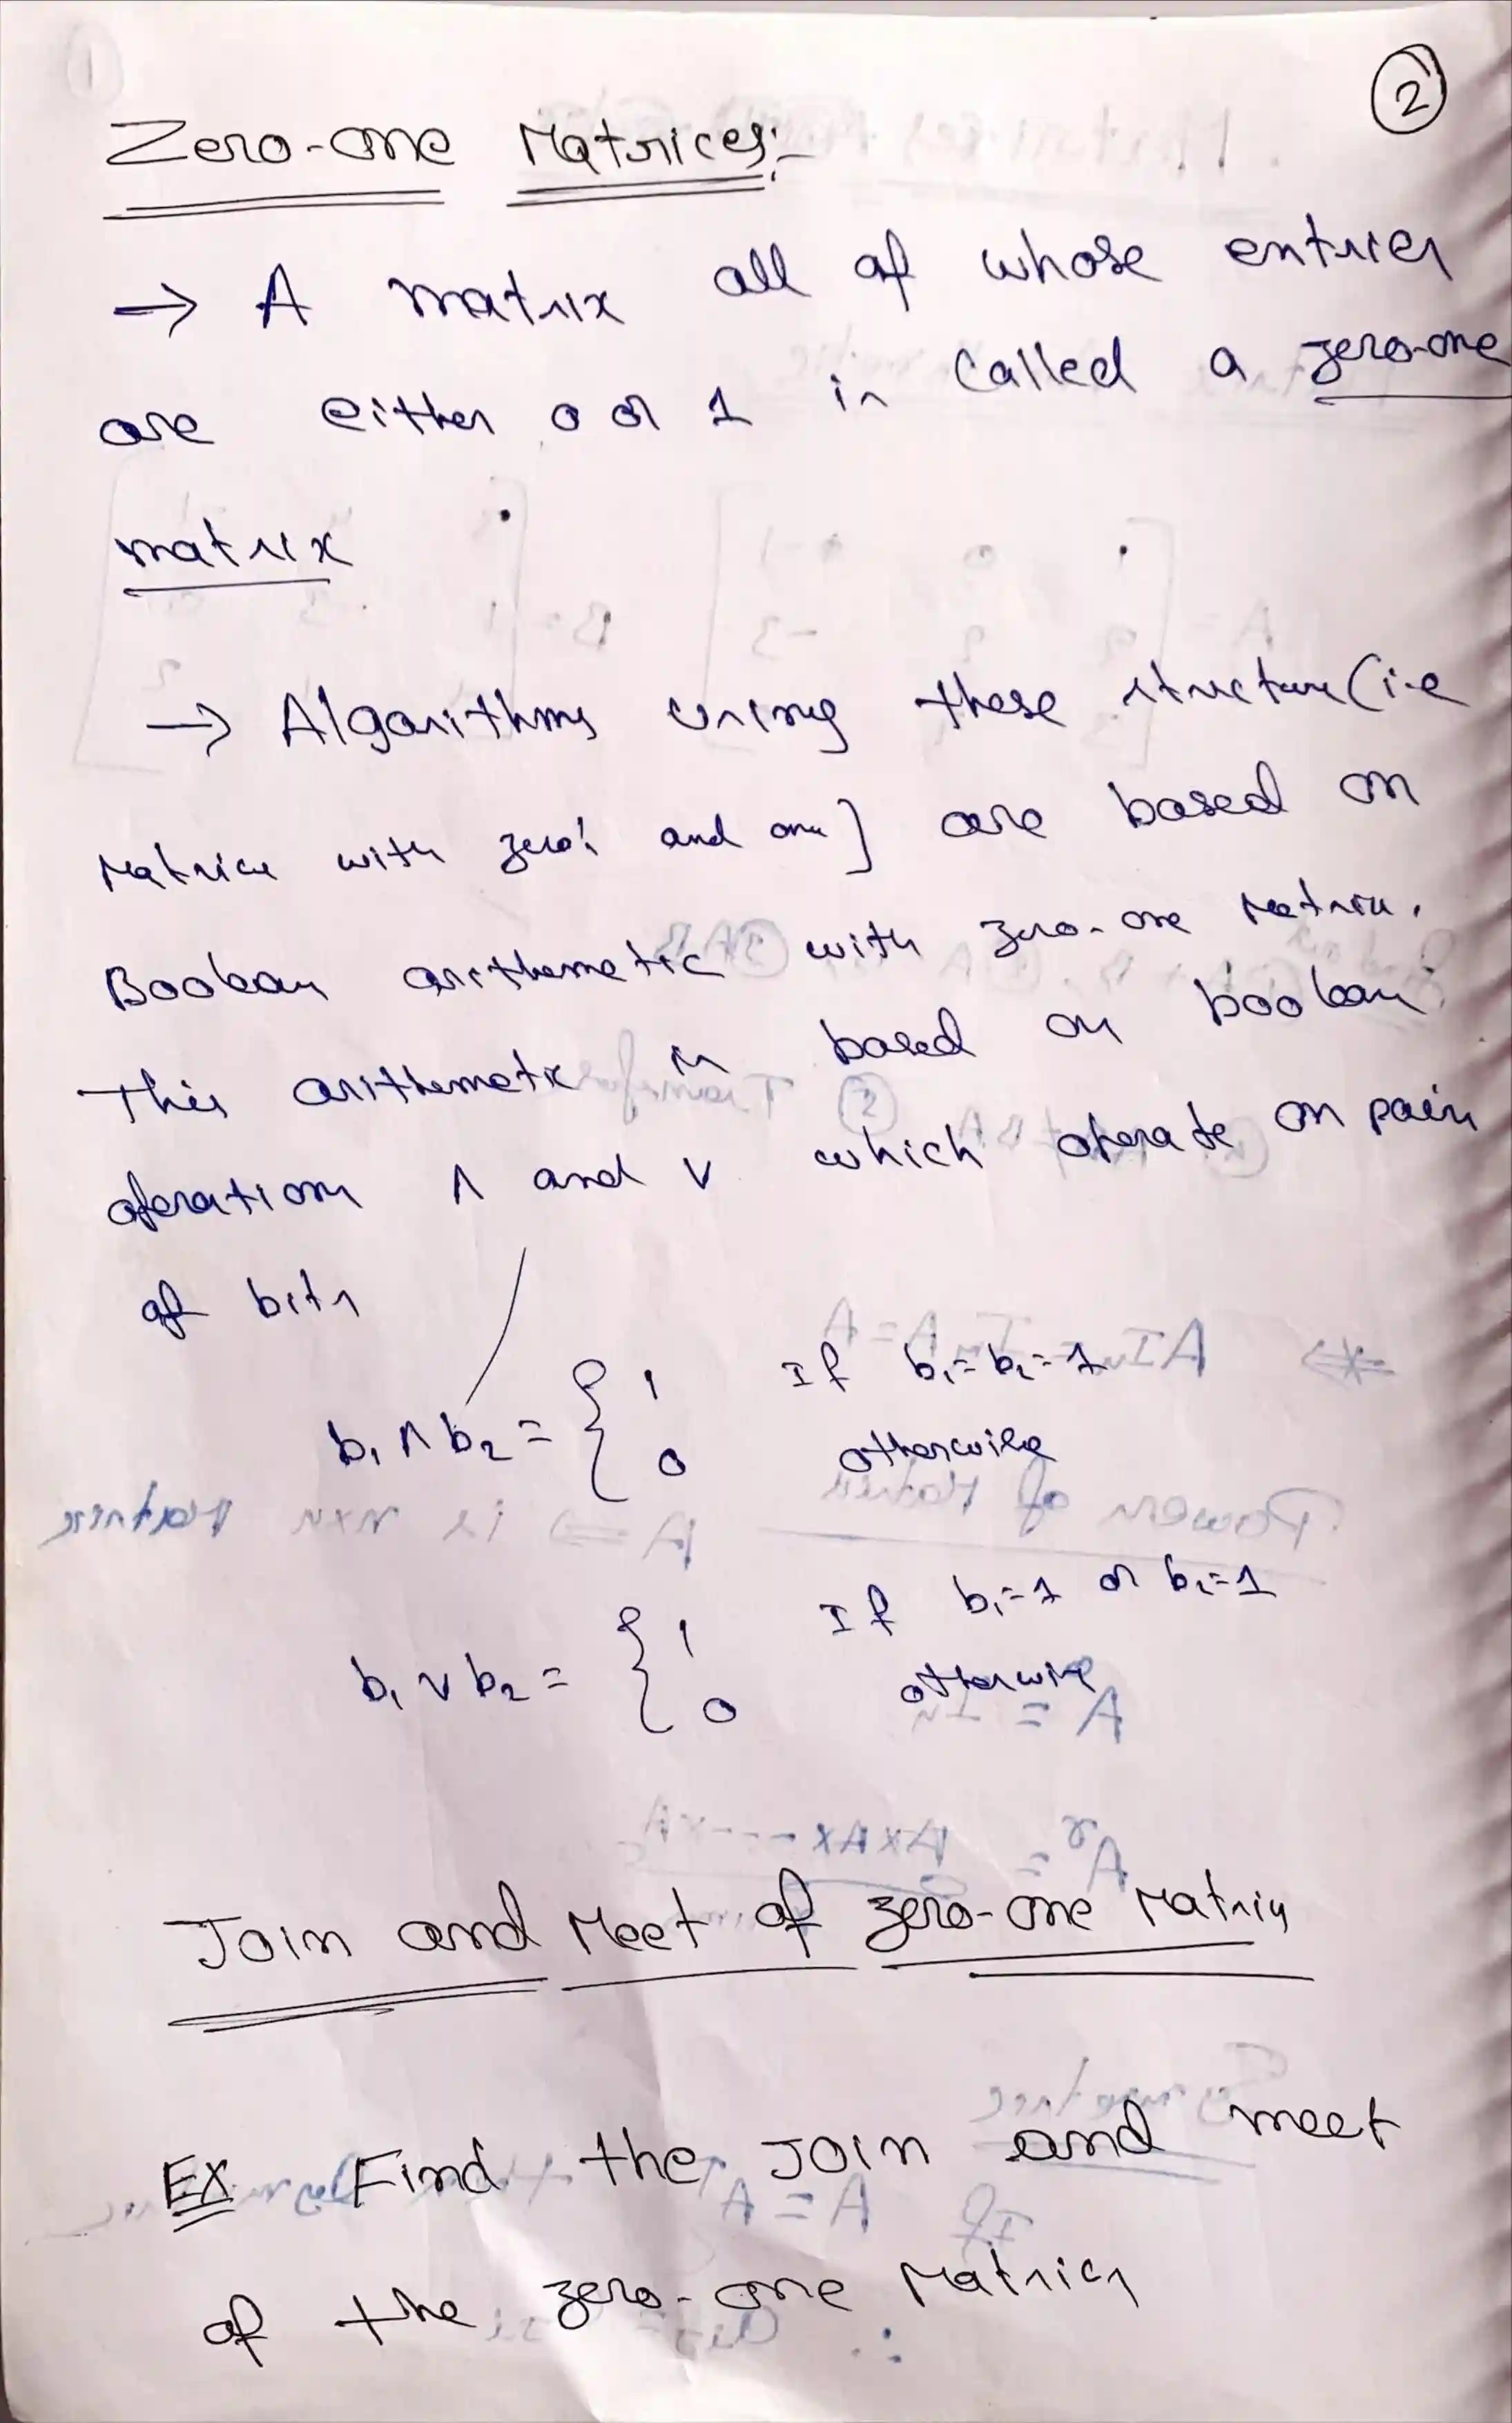 2
Zero-one Matrices:-
→ A matrix all of whose entries
are either 0 or 1 is called a zero-one
matrix
→ Algorithms using these structure (i.e
Matrices with zero's and one] are based on
Boolean arithemetic with zero-one Matrix.
This arithemetic is based on boolean
operations ∧ and ∨ which operate on pairs
of bits
b₁ ∧ b₂ = { 1 If b₁ = b₂ = 1
0 otherwise
b₁ ∨ b₂ = { 1 If b₁ = 1 or b₂ = 1
0 otherwise
Join and Meet of zero-one Matrix
EX Find the Join and meet
of the zero-one Matrices